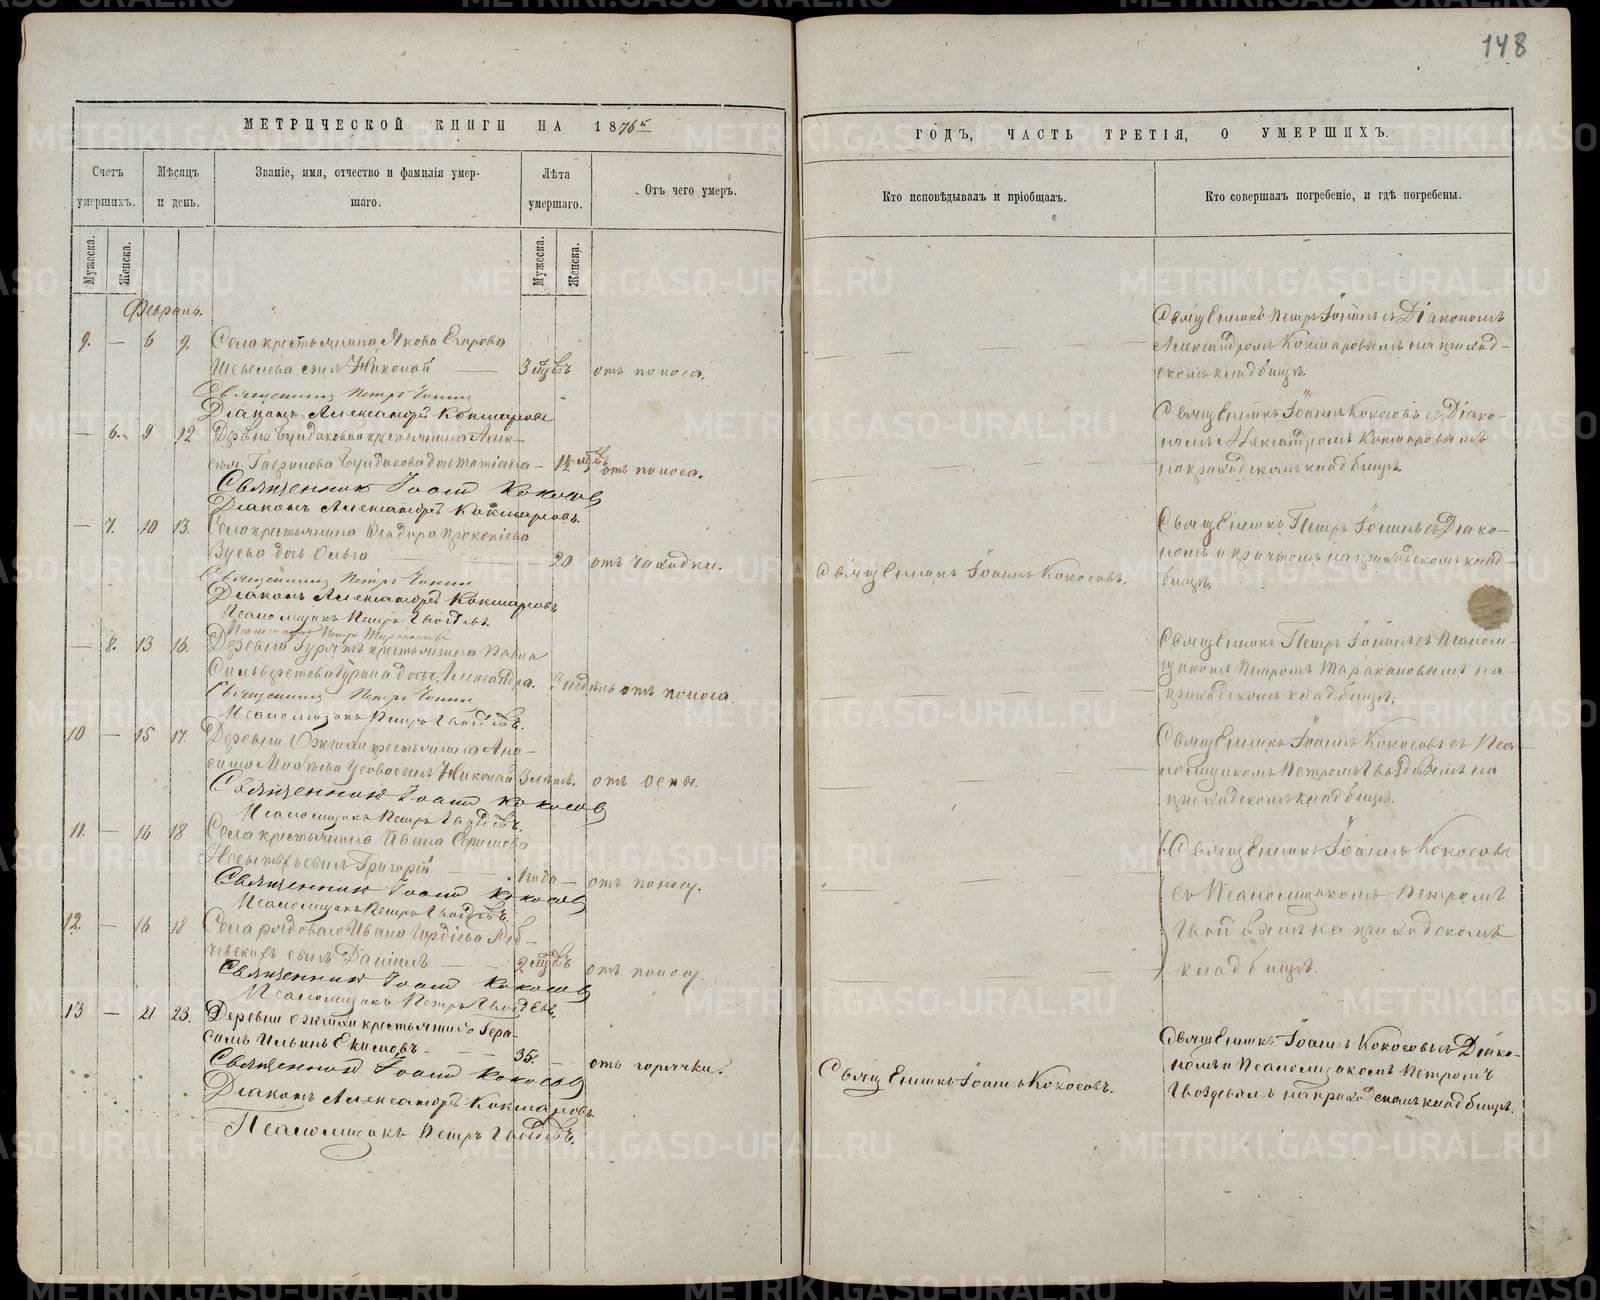 148
МЕТРИЧЕСКОЙ КНИГИ НА 1876й
ГОДЪ, ЧАСТЬ ТРЕТІЯ, О УМЕРШИХЪ.
Счетъ умершихъ.
Мѣсяцъ и день.
Званіе, имя, отчество и фамилія умер-
шаго.
Лѣта умершаго.
Отъ чего умеръ.
Кто исповѣдывалъ и пріобщалъ.
Кто совершалъ погребеніе, и гдѣ погребены.
Мужеска.
Женска.
Мужеска.
Женска.
Февраль.
9. — 6 9. Села крестьянина Якова Егорова
сынъ Николай 3 отъ поноса.
Священникъ Петръ
Діаконъ Александръ Кокшаровъ
Священникъ Петръ съ Діакономъ
Александромъ Кокшаровымъ на приход-
скомъ кладбищѣ.
— 6. 9 12 Деревни крестьянина
Гаврилова дочь Татіана — отъ поноса.
Священникъ Іоаннъ Кокосовъ
Діаконъ Александръ Кокшаровъ.
Священникъ Іоаннъ Кокосовъ съ Діако-
номъ Александромъ Кокшаровымъ
на приходскомъ кладбищѣ.
— 7. 10 13. Села крестьянина Ѳеодора Прокопіева
Зуева дочь Ольга — 20 отъ чахотки.
Священникъ Петръ
Діаконъ Александръ Кокшаровъ
Псаломщикъ Петръ Гвоздевъ.
Священникъ Іоаннъ Кокосовъ.
Священникъ Петръ съ Діако-
номъ и причтомъ на приходскомъ клад-
бищѣ.
— 8. 13 16. Деревни крестьянина Павла
дочь Александра. недѣль отъ поноса.
Священникъ Петръ
Псаломщикъ Петръ Гвоздевъ.
Священникъ Петръ съ Псалом-
щикомъ Петромъ Таракановымъ на
приходскомъ кладбищѣ.
10 — 15 17. Деревни крестьянина
сынъ Николай 3 лѣтъ. отъ оспы.
Священникъ Іоаннъ Кокосовъ
Псаломщикъ Петръ Гвоздевъ.
Священникъ Іоаннъ Кокосовъ съ Пса-
ломщикомъ Петромъ Гвоздевымъ на
приходскомъ кладбищѣ.
11. — 16 18 Села крестьянина Ивана
сынъ Григорій 1 года — отъ поносу.
Священникъ Іоаннъ Кокосовъ
Псаломщикъ Петръ Гвоздевъ.
Священникъ Іоаннъ Кокосовъ
съ Псаломщикомъ Петромъ
Гвоздевымъ на приходскомъ
кладбищѣ.
12. — 16 18 Села рядоваго Ивана Гордіева
сынъ Даніилъ 2 отъ поносу.
Священникъ Іоаннъ Кокосовъ
Псаломщикъ Петръ Гвоздевъ.
13 — 21 23. Деревни крестьянинъ Гера-
симъ Ильинъ Екимовъ — 35. — отъ горячки.
Священникъ Іоаннъ Кокосовъ
Діаконъ Александръ Кокшаровъ
Псаломщикъ Петръ Гвоздевъ.
Священникъ Іоаннъ Кокосовъ.
Священникъ Іоаннъ Кокосовъ съ Діако-
номъ и Псаломщикомъ Петромъ
Гвоздевымъ на приходскомъ кладбищѣ.
METRIKI.GASO-URAL.RU